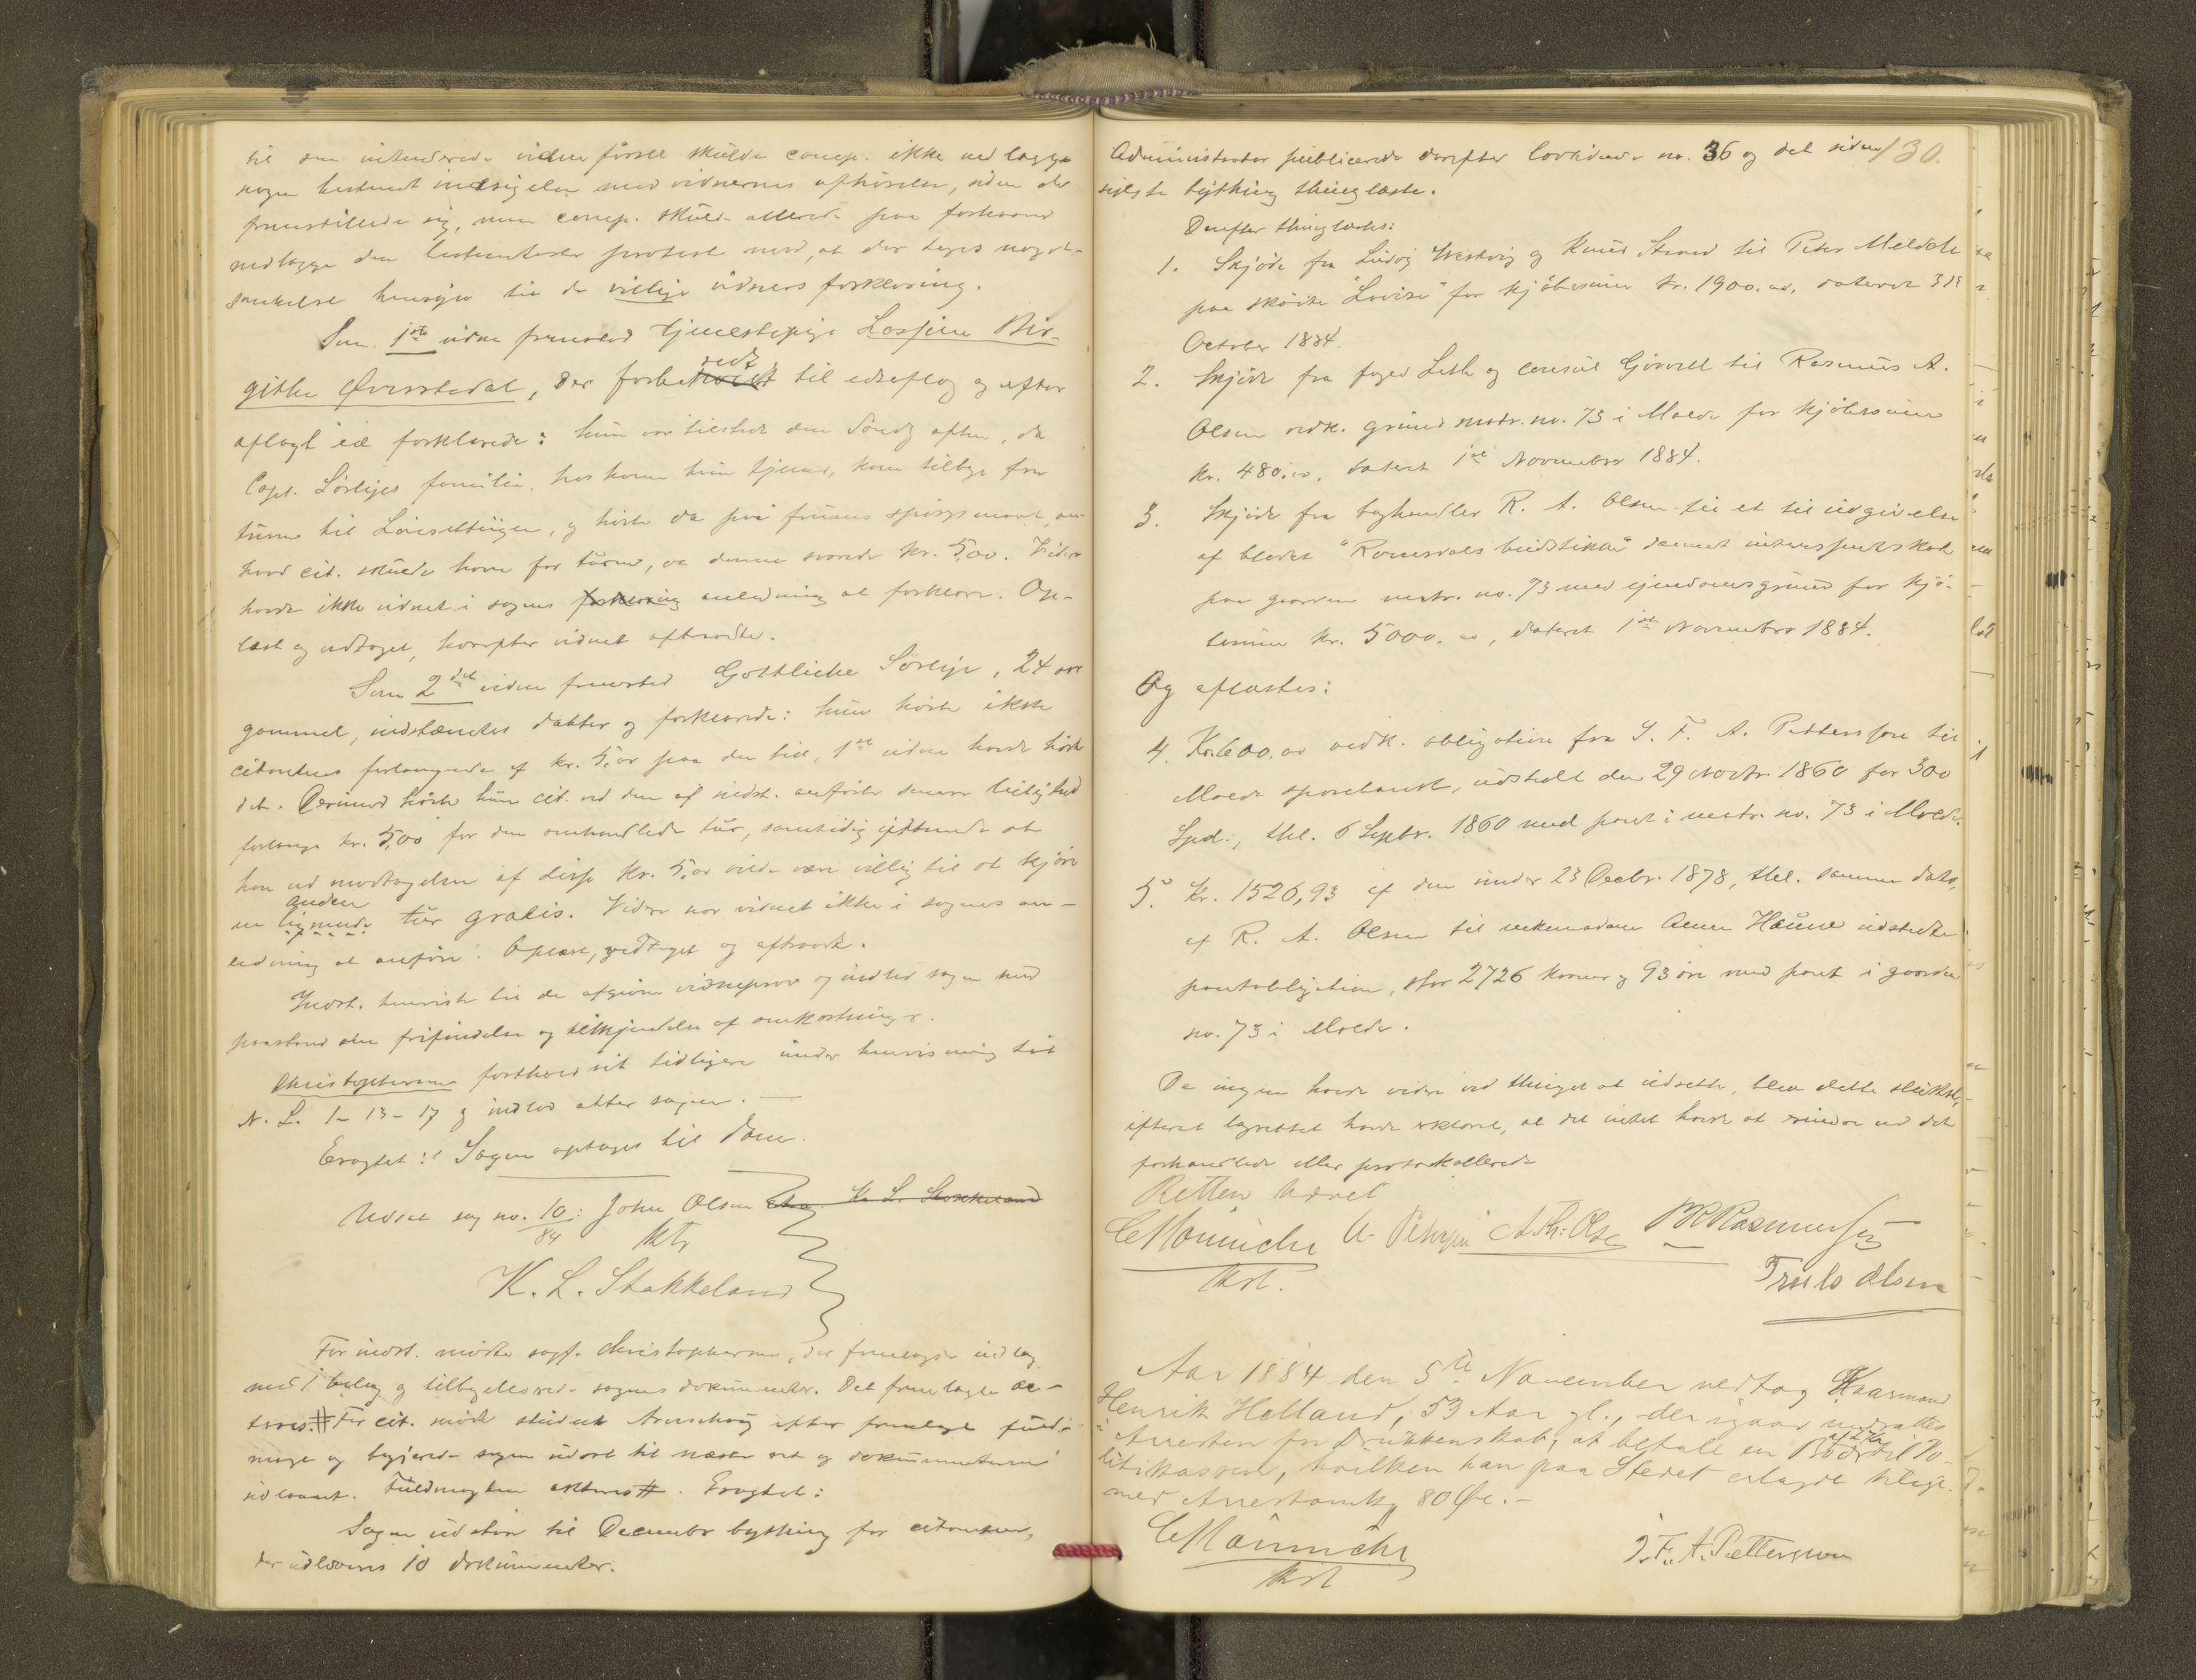 til den intenderede vidneførsel skulde comp. ikke nedlægge
nogen bestemt indsigelse mod vidnernes afhørelse, siden de
fremstillede sig, men comp. skulde allerede paa forhaand
nedlægge den bestemteste protest mod, at der tages noget-
somhelst hensyn til de villige vidners forklaring.
Som 1ste vidne fremstod tjenestepige Lossine Bir-
githe Øverstedal, der forberedt til edsaflæg og efter
aflagt ed forklarede: hun var tilstede den Søndag aften, da
Capt. Lørliges familie, hos hvem hun tjener, kom tilbage fra
turen til , og hørte da paa fruens spørgsmaal, om
hvad cit. skulde have for turen, at denne svarede kr. 5,00. Videre
havde ikke vidnet i sagens forklaring anledning at forklare. Op-
læst og vedtaget, hvorefter vidnet aftraadte.
Som 2det vidne fremstod Gottliebe Sørlige, 24 aar
gammel, indstævntes datter og forklarede: hun hørte ikke
citantens forlangende af kr. 5,00 paa den tid, 1ste vidne havde hørt
det. Derimod hørte hun cit. ved den af indst. anførte senere leilighed
forlange kr. 5,00 for den omhandlede tur, samtidig ytrende at
han ved modtagelsen af disse kr. 5,00 vilde være villig til at kjøre
anden
en lignende tur gratis. Videre har vidnet ikke i sagens an-
ledning at anføre. Oplæst, vedtaget og aftraadt.
Indst. henviste til de afgivne vidneprov og indlod sagen med
paastand om frifindelse og tilkjendelse af omkostninger.
Christophersen fastholdt sit tidligere under henvisning til
N. L. 1-13-17 og indlod atter sagen. —
Eragtet: Sagen optages til dom.
Udsat sag no. 10/84: John Olsen ctra. K. L. Stokkeland
ktr
K. L. Stakkeland
For indst. mødte sagf. Christophersen, der fremlagde indlæg
med 1 bilag og tilbageleverede sagens dokumenter. Det fremlagte ac-
teres.# For cit. mødte student Aarskog efter fremlagt fuld-
magt og begjærede sagen udsat til næste ret og dokumenterne
udlaant. Fuldmagten akteres#. Eragtet:
Sagen udstaar til December bything for citanten,
der udleveres 10 dokumenter.
130.
Administrator publicerede derefter lovtidende no. 36 og det siden
sidste bything thinglæste.
Derefter thinglæstes:
1. Skjøde fra Ludvig Westvig og Knud Strand til Peter Meldele
paa skøite "Lovise" for kjøbesum kr. 1900.00, dateret 31te
October 1884.
2. Skjøde fra foged Leth og consul Gørvell til Rasmus A.
Olsen vedk. grund matr. no. 73 i Molde for kjøbesum
kr. 480.00, dateret 1ste November 1884.
3. Skjøde fra boghandler R. A. Olsen til et til udgivelse
af bladet "Romsdals budstikke" dannet interessentskab
paa gaarden matr. no. 73 med eiendomsgrund for kjø-
besum kr. 5000.00, dateret 1ste November 1884.
Og aflæstes:
4. Kr. 600.00 vedk. obligation fra J. F. A. Pettersson til
Molde sparebank, udstedt den 29 1860 for 300
Spd., thl. 6 Septbr. 1860 med pant i matr. no. 73 i Molde.
5. Kr. 1526,93 af den under 23 Decbr. 1878, thl. samme dato,
af R. A. Olsen til enkemadam Anne Haune udstedte
pantobligation, stor 2726 kroner og 93 øre med pant i gaarden
no. 73 i Molde.
Da ingen havde videre ved thinget at udrette, blev dette sluttet,
efterat lagrettet havde erklæret, at det intet havde at erindre ved det
forhandlede eller protokollerede
Retten hævet
C Mönniche U. A. Th: Olsen P R Rasmussen
kst. Truls Olsen
Aar 1884 den 5te November vedtog Kaarmand
Henrik Helland, 53 Aar gl., der igaar indsattes
i Arresten for Drukkenskab, at betale en Bøde af 2 Kr til Po-
litikassen, hvilken han paa Stedet erlagde tillige-
med Arrestomkg 80 Øre. -
C Mönniche J. F. A. Pettersson
kst